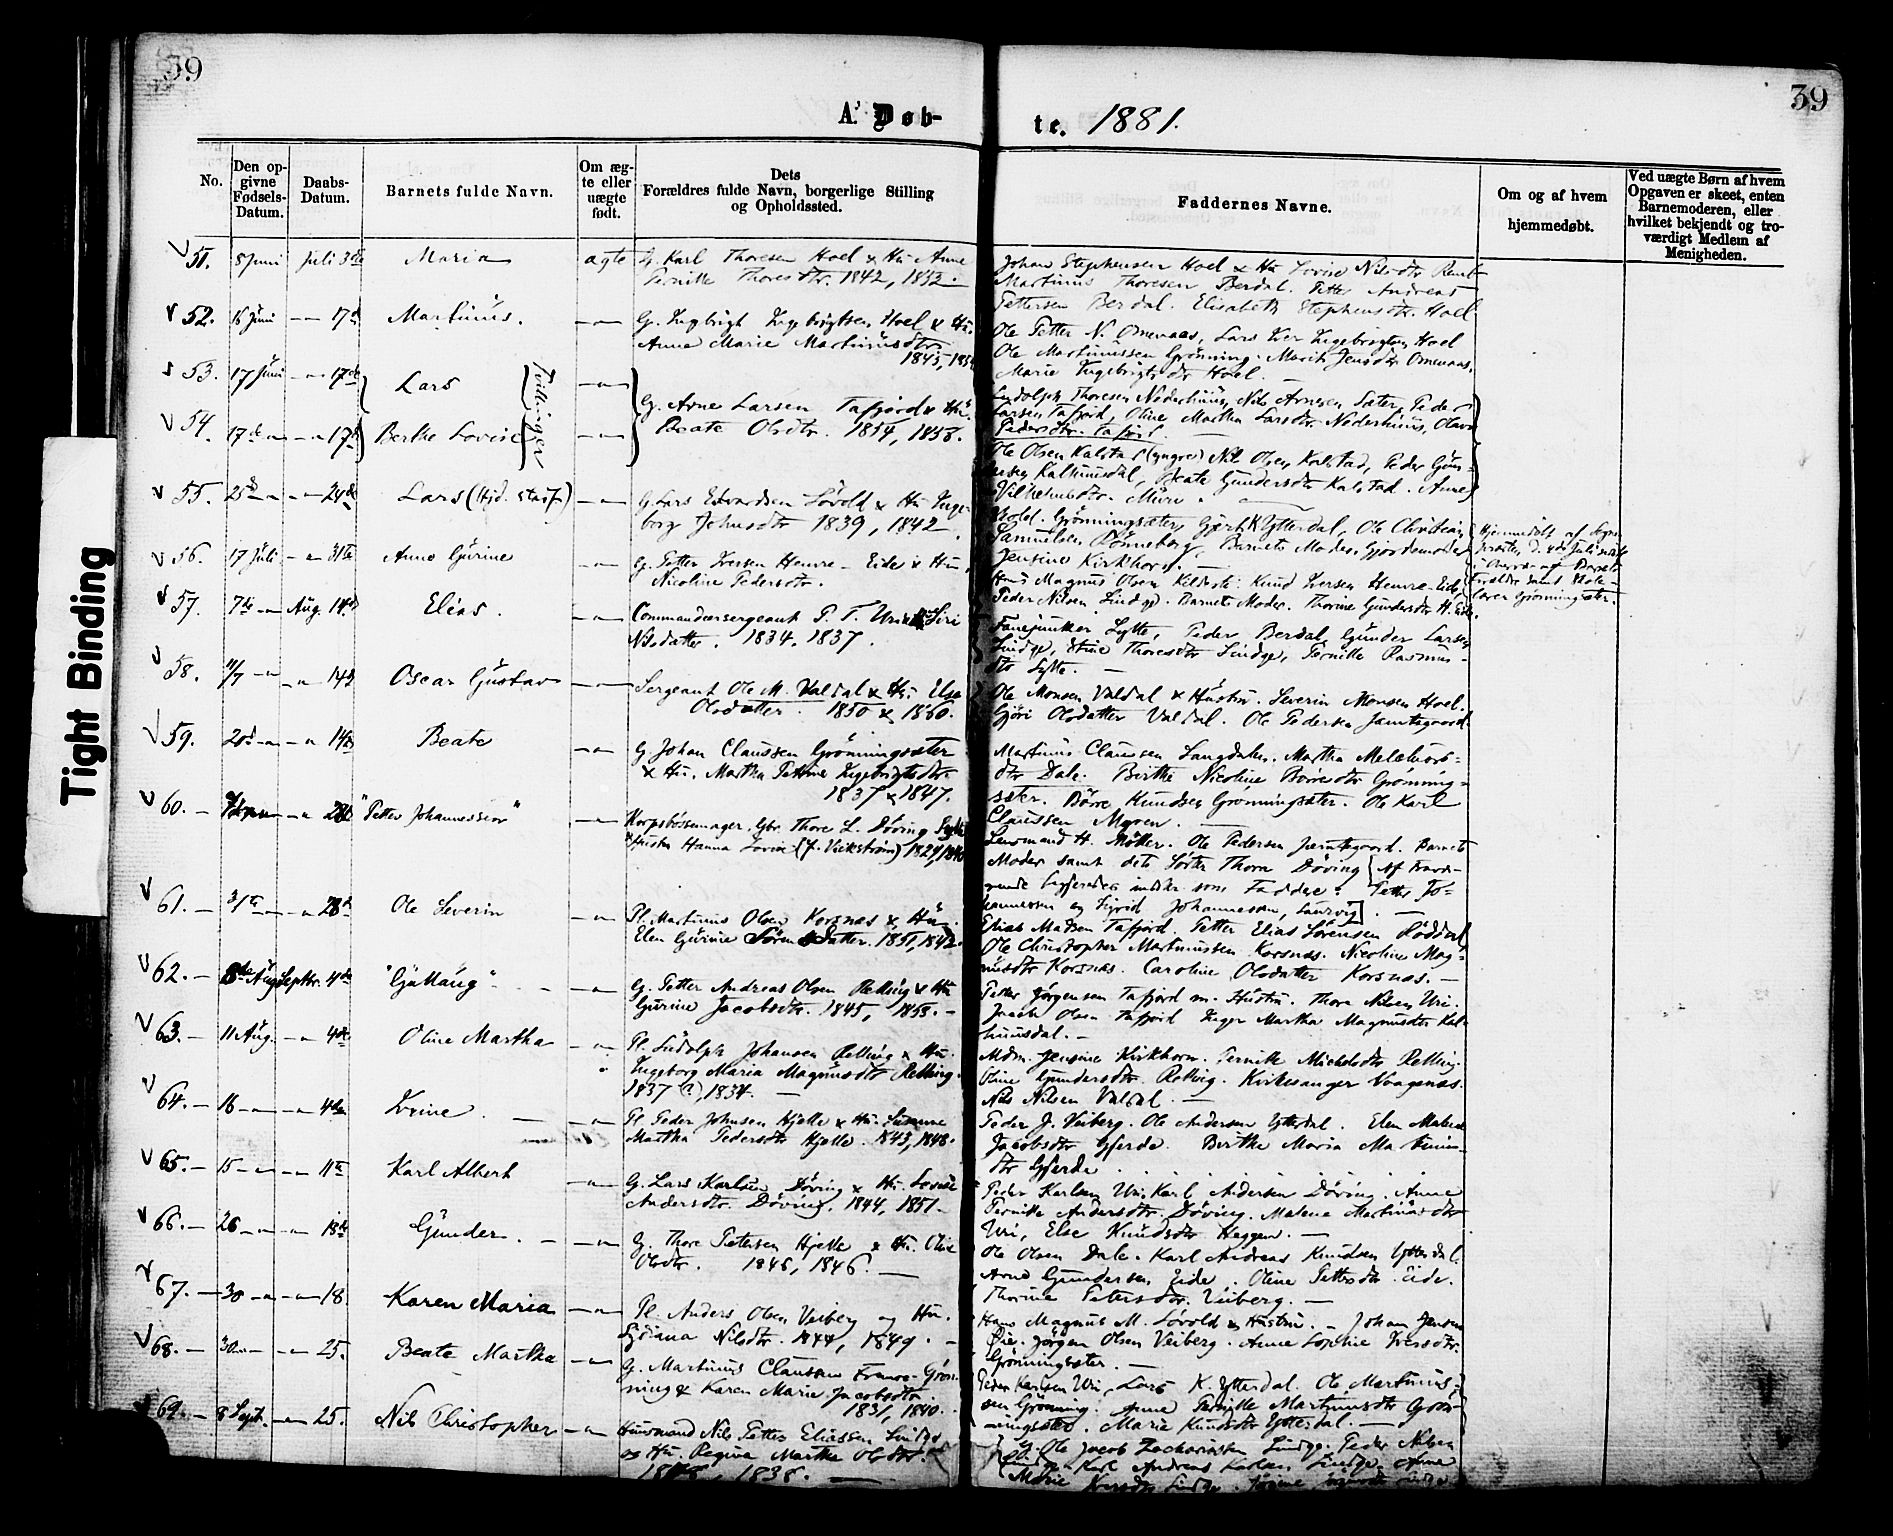 39
39
A. Døb-
te. 1881.
Tight Binding
No.
Den op-
givne
Fødsels-
Datum.
Daabs-
Datum.
Barnets fulde Navn.
Om æg-
te eller
uægte
født.
Dets
Forældres fulde Navn, borgerlige Stilling
og Opholdssted.
Faddernes Navne.
Om og af hvem
hjemmedøbt.
Ved uægte Børn af hvem
Opgaven er skeet, enten
Barnemoderen, eller
hvilket bekjendt og tro-
værdigt Medlem af
Menigheden.
51. 8 Juni Juli 3die Maria ægte G. Karl Thoresen Hoel & Hu. Anne
Pernille Thoresdtr. 1842, 1853.
Johan Stephensen Hoel & Hu Lovise Nilsdtr
Martinus Thoresen Berdal. Petter Andreas
Pettersen Berdal. Elisabeth Stephensdtr. Hoel
52. 16 Juni 17de Martinus. G. Ingbrigt Ingebrigtsen Hoel & Hu.
Anne Marie Martinusdtr.
Ole Petter N. Omenaas, Lars Iver Ingebrigtsen Hoel
Ole Martinussen Grønning. Marit Jensdtr Omenaas,
Marie Ingebrigtsdtr Hoel.
53. 17 Juni 17de Lars
Tvillinger
54. 17de 17de Berthe Lovise
G. Arne Larsen Tafjord & Hu.
Beate Olsdtr. 1854, 1858.
Ludolph Thoresen Nederhuus, Nils Arnesen Sæter, Peder
Larsen Tafjord, Oline Martha Larsdtr. Nederhuus, Olava
Pedersdtr. Tafjord.
Ole Olsen Kalstad (yngre) Nils Olsen Kalstad, Peder
Kalhuusdal, Beate Gundersdtr Kalstad. Anne
Vilhelmsdtr. Muri.
55. 25de 24de Lars G. Lars Edvardsen Løvold & Hu Inge-
borg Johnsdtr 1839, 1842.
Grønningsæter, Gjert K Ytterdal, Ole Christian
Samuelsen Rønneberg, Barnets Moder, Gjordemoder
Jensine Kirkhorn.
Hjemmedøbt af Sogne-
56. 17 Juli 31te Anne Gurine G. Petter Iversen Hemre-Eide & Hu.
Nicoline Pedersdtr.
Magnus Olsen Kilsti. Knud Iversen Hemre-Eide,
Peder Nilsen Lindge. Barnets Moder. Thorine Gundersdtr H. Eide.
57. 7de Aug. 14de Elias. Commandeersergeant P. T. Uri & Siri
Nilsdatter. 1834. 1837.
Fanejunker Sylte, Peder Berdal, Gunder Larsen
Lindge, Stine Thoresdtr Lindge, Pernille Rasmus-
dtr Sylte.
58. 11/7 14de Oscar Gustav Sergeant Ole M. Valdal & Hu. Else
Olsdatter. 1850 & 1860.
Ole Monsen Valdal & Hustru. Severin Monsen Hoel.
Gjøri Olsdatter Valdal. Ole Pedersen Jamtegaard.
59. 20de 14de Beate G. Johan Claussen Grønningsæter
& Hu. Martha Petrine Ingebrigtsdtr.
1837 & 1847.
Martinus Claussen Langdalen. Martha Melchiors-
dtr Dale. Birthe Nicoline Børresdtr Grønning-
sæter. Børre Knudsen Grønningsæter. Ole Karl
Claussen Myren.
60. 28de "Petter Johannessen" Korpsbøssemager. Gbr. Thore L. Døving Sylte
Hustru Hanna Lovise (f. Vickstrøm)
Lensmand H. Møller. Ole Pedersen Jamtegaard. Barnets
Moder samt dets Søster Thora Døving
som Faddere: Petter Jo-
hannessen og Sigrid Johannessen,
61. 31te 28de Ole Severin Pl. Martinus Olsen Korsnæs & Hu.
Elen Gurine Sørensdatter. 1851, 1842.
Elias Madsen Tafjord. Petter Elias Sørensen Røddal
Ole Christopher Martinussen Korsnæs. Nicoline Mag-
nusdtr Korsnæs. Caroline Olsdatter Korsnæs.
62. 8de Aug Septbr. 4de "Gullaug" G. Petter Andreas Olsen Relling & Hu
Gurine Jacobsdtr. 1845, 1853.
Peder Jørgensen Tafjord m. Hustru. Thore Nilsen Uri.
Jacob Olsen Tafjord Inger Martha Magnusdtr Kal-
huusdal.
63. 11 Aug. 4de Oline Martha Pl. Ludolph Johansen Relling & Hu.
Ingeborg Maria Magnusdtr Relling.
1837 (?), 1834.
Mdm. Jensine Kirkhorn. Pernille Michelsdtr Relling.
Oline Gundersdtr. Relling. Kirkesanger Vaagenæs.
Nils Nilsen Valdal.
64. 16 4de Ivrine. Pl. Peder Johnsen Hjelle & Hu.
Martha Pedersdtr Hjelle. 1843, 1848.
Peder J. Veiberg. Ole Andersen Ytterdal. Elen Malene
Jacobsdtr Gjerde. Birthe Maria Martinus-
dtr Gjerde.
65. 15 11te Karl Albert G. Lars Karlsen Døving & Hu. Lovise
Andersdtr. Døving. 1844, 1851.
Peder Karlsen Uri, Karl Andersen Døving. Anne
Pernille Andersdtr. Døving. Malene Martinusdtr
Uri, Else Knudsdtr Heggen.
66. 26 18de Gunder. G. Thore Petersen Hjelle & Hu. Oline
Olsdtr. 1845, 1846.
Ole Olsen Dale. Karl Andreas Knudsen Ytterdal.
Arne Gundersen Eide. Oline Pettersdtr. Eide.
Thorine Petersdtr. Veiberg.
67. 30 18. Karen Maria Pl. Anders Olsen Veiberg og Hu.
Nilsdtr. 1844, 1849.
Hans Magnus M. Løvold & Hustru. Johan Jensen
Øie. Jørgen Olsen Veiberg. Anne Sophie Iversdtr.
Grønningsæter.
68. 30 25. Beate Martha G. Martinus Claussen Grøn-
ning & Karen Marie Jacobsdtr.
1831, 1840.
Peder Karlsen Uri, Lars K. Ytterdal. Ole Martinus-
sen Grønning. Anne Pernille Martinusdtr Grøn-
ningsæter. Marie Knudsdtr Ytterdal.
69. 8 Sept. 25. Nils Christopher Huusmand Nils Petter Eliassen Lindge
og Hu. Regine Marthe Olsdtr.
1838.
G. Ole Jacob Zachariassen Lindge. Peder Nilsen
Karl Andreas Karlsen Lindge. Anne
Marie